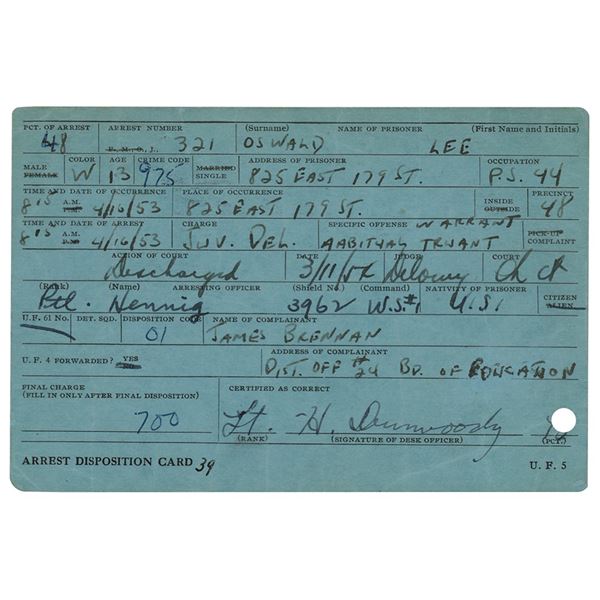 PCT. OF ARREST ARREST NUMBER (Surname) NAME OF PRISONER (First Name and Initials)
48 F., M., G., J., 321 OSWALD LEE
MALE FEMALE COLOR AGE CRIME CODE MARRIED SINGLE ADDRESS OF PRISONER OCCUPATION
W 13 975 825 EAST 179 ST. P.S. 44
TIME AND DATE OF OCCURRENCE PLACE OF OCCURRENCE INSIDE OUTSIDE PRECINCT
8 15 A.M. P.M. 4/16/53 825 EAST 179 ST. 48
TIME AND DATE OF ARREST CHARGE SPECIFIC OFFENSE WARRANT PICK-UP COMPLAINT
8 15 A.M. P.M. 4/16/53 JUV. DEL. TRUANT
ACTION OF COURT DATE JUDGE COURT
Discharged 3/11/54 Delany Ch Ct
(Rank) (Name) ARRESTING OFFICER (Shield No.) (Command) NATIVITY OF PRISONER CITIZEN ALIEN
Ptl. Hennig 3962 U.S.
U.F. 61 No. DET. SQD. DISPOSITION CODE NAME OF COMPLAINANT
01 JAMES BRENNAN
U.F. 4 FORWARDED? YES ADDRESS OF COMPLAINANT
DIST. OFF # 24 BD. OF EDUCATION
FINAL CHARGE CERTIFIED AS CORRECT
(FILL IN ONLY AFTER FINAL DISPOSITION)
700 Lt. H. Dunwoody
(RANK) (SIGNATURE OF DESK OFFICER) (PCT.)
ARREST DISPOSITION CARD 39 U. F. 5